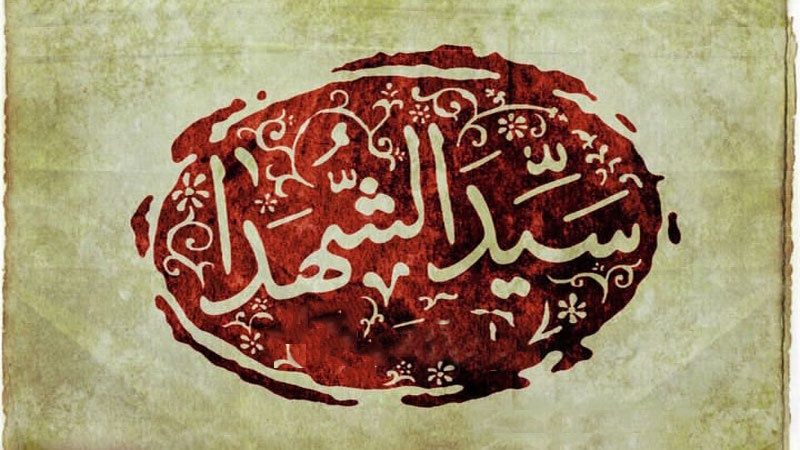 سَیِّدَ الشُّهَدَا